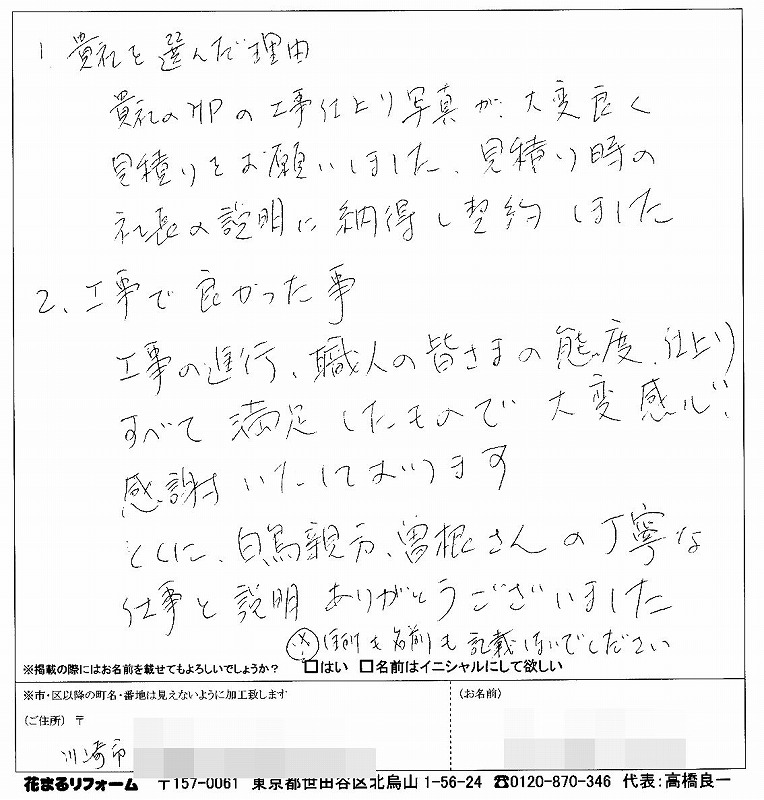 1. 貴社を選んだ理由
貴社のHPの工事仕上り写真が、大変良く
見積りをお願いしました、見積り時の
社長の説明に納得し契約しました
2、工事で良かった事
工事の進行、職人の皆さまの態度、仕上り
すべて満足したもので大変感心、
感謝いたしております
とくに、白鳥親方、曽根さんの丁寧な
仕事と説明ありがとうございました
※住所も名前も記載しないでください
※掲載の際にはお名前を載せてもよろしいでしょうか? □はい □名前はイニシャルにして欲しい
※市・区以降の町名・番地は見えないように加工致します
(お名前)
(ご住所) 〒
川崎市
花まるリフォーム 〒157-0061 東京都世田谷区北烏山 1-56-24 ☎0120-870-346 代表:高橋良一